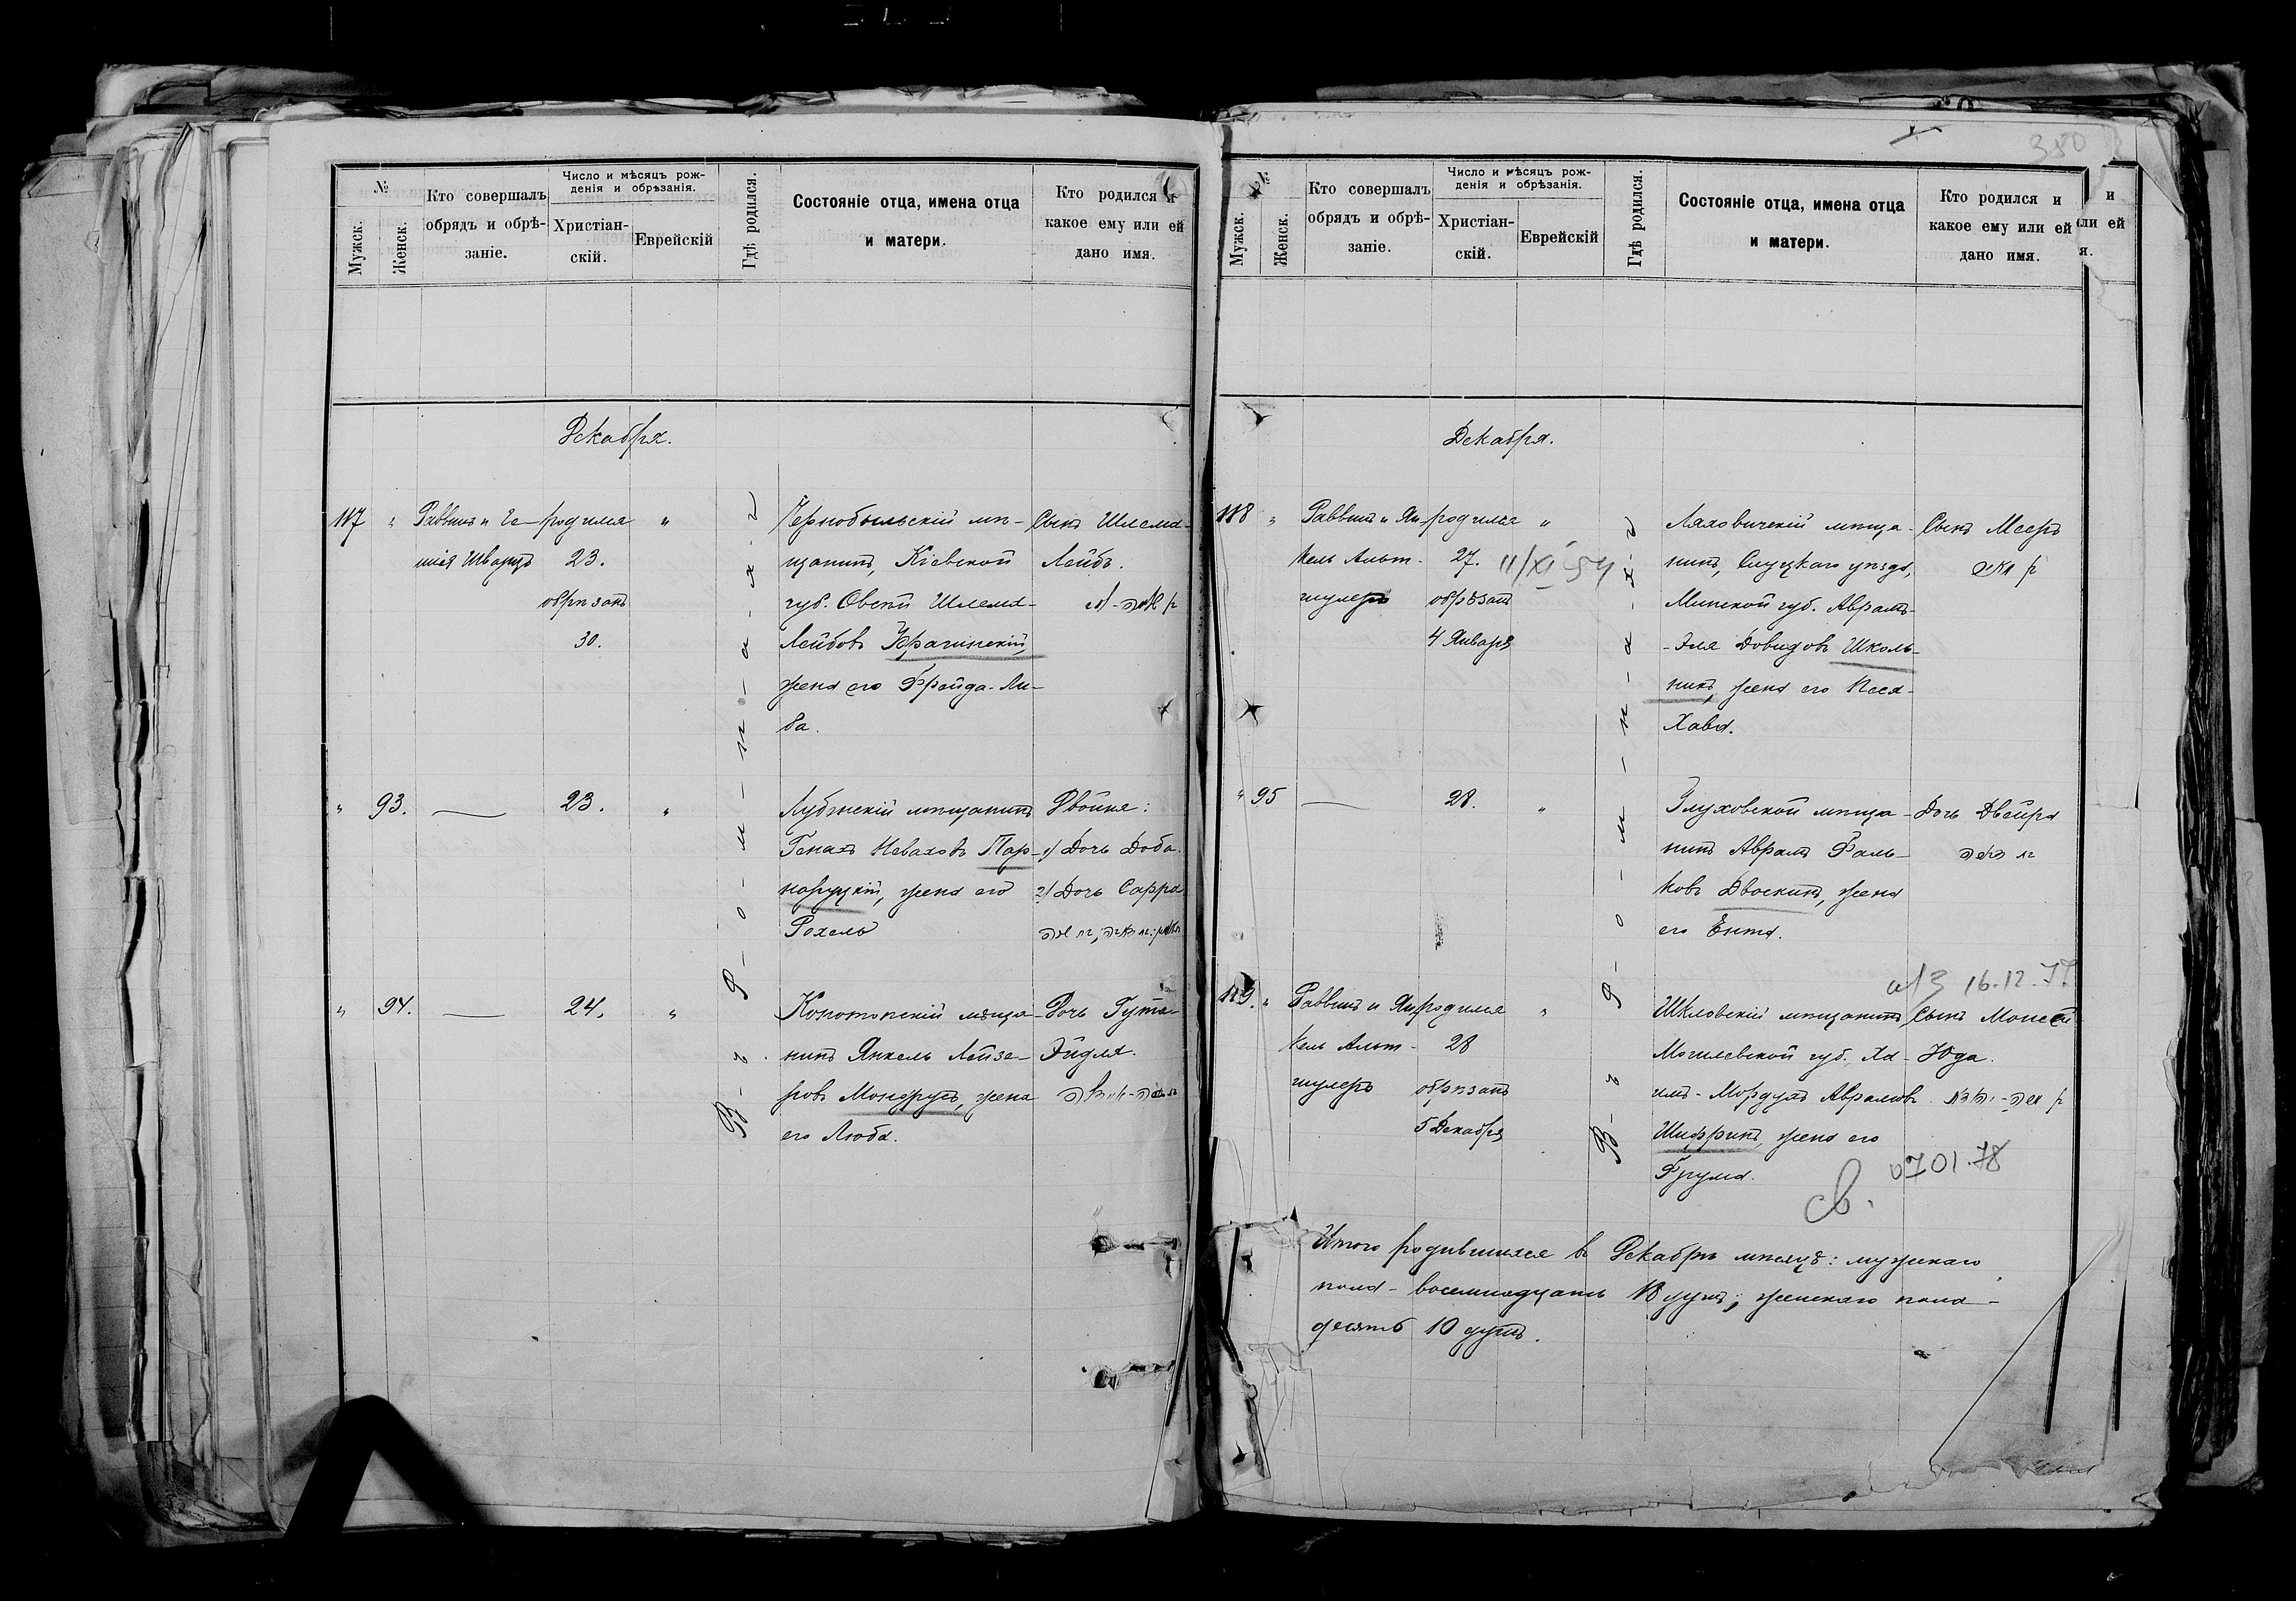 №
Мужск.
Женск.
Кто совершалъ
обрядъ и обрѣ-
заніе.
Число и мѣсяцъ рож-
денія и обрѣзанія.
Христіан-
скій.
Еврейскій
Гдѣ родился.
Состояніе отца, имена отца
и матери.
Кто родился и
какое ему или ей
дано имя.
Декабря.
117 " Раввинъ и
Шварцъ
родился
23.
обрѣзанъ
30.
"
Чернобыльскій мѣ-
щанинъ, Кіевской
губ. Овсей Шлема-
Лейбовъ
жена его Фрейда-Ли-
ба.
Сынъ Шлема-
Лейбъ.
" 93. — 23. "
Лубенскій мѣщанинъ
Генахъ Неваховъ Пар-
нарускій, жена его
Рохель
Двойня:
1) Дочь Доба.
2) Дочь Сарра
" 94. — 24. "
Конотопскій мѣща-
нинъ Янкель Лейзе-
ровъ Мондрусъ, жена
его Люба.
Дочь Гута-
Эйдля.
В-ъ Р-о-м-н-а-х-ъ
380
№
Мужск.
Женск.
Кто совершалъ
обрядъ и обрѣ-
заніе.
Число и мѣсяцъ рож-
денія и обрѣзанія.
Христіан-
скій.
Еврейскій
Гдѣ родился.
Состояніе отца, имена отца
и матери.
Кто родился и
какое ему или ей
дано имя.
и
ли ей
я.
Декабря.
118 " Раввинъ и Ян-
кель Альт-
шулеръ
родился
27.
обрѣзанъ
4 Января
"
11/XI 54
Ляховичскій мѣща-
нинъ, Слуцкаго уѣзда,
Минской губ. Аврамъ-
-Эля Довидовъ Школь-
никъ, жена его Песя-
Хава.
Сынъ Мееръ
" 95 — 28. "
Глуховской мѣща-
нинъ Аврамъ Фаль-
ковъ Двоскинъ, жена
его Ента.
Дочь Двейра
16.12.77
119. " Раввинъ и Ян-
кель Альт-
шулеръ
родился
28
обрѣзанъ
5 Декабря
"
Шкловскій мѣщанинъ
Могилевской губ. Ха-
имъ-Мордухъ Аврамовъ
Шифринъ, жена его
Фрума.
Сынъ Моисей
Юда.
0701.78
св.
В-ъ Р-о-м-н-а-х-ъ
Итого родившихся въ Декабрѣ мѣсяцѣ: мужскаго
пола - восемнадцать 18 душъ; женскаго пола -
десять 10 душъ.